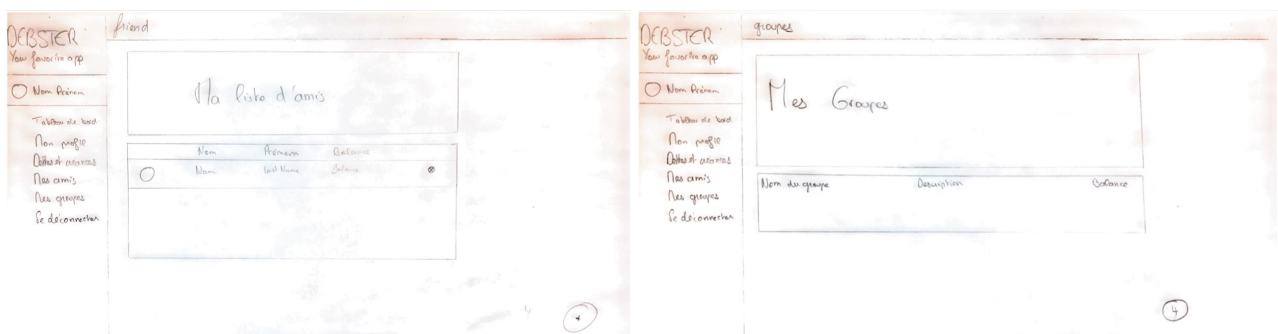 DEBSTER
Your favorite app
Nom Prénom
Tableau de bord
Mon profil
Dettes et avances
Mes amis
Mes groupes
Se déconnecter
friend
Ma liste d'amis
Nom Prénom Balance
Nom Last Name Balance
DEBSTER
Your favorite app
Nom Prénom
Tableau de bord
Mon profil
Dettes et avances
Mes amis
Mes groupes
Se déconnecter
groupes
Mes Groupes
Nom du groupe Description Balance
4